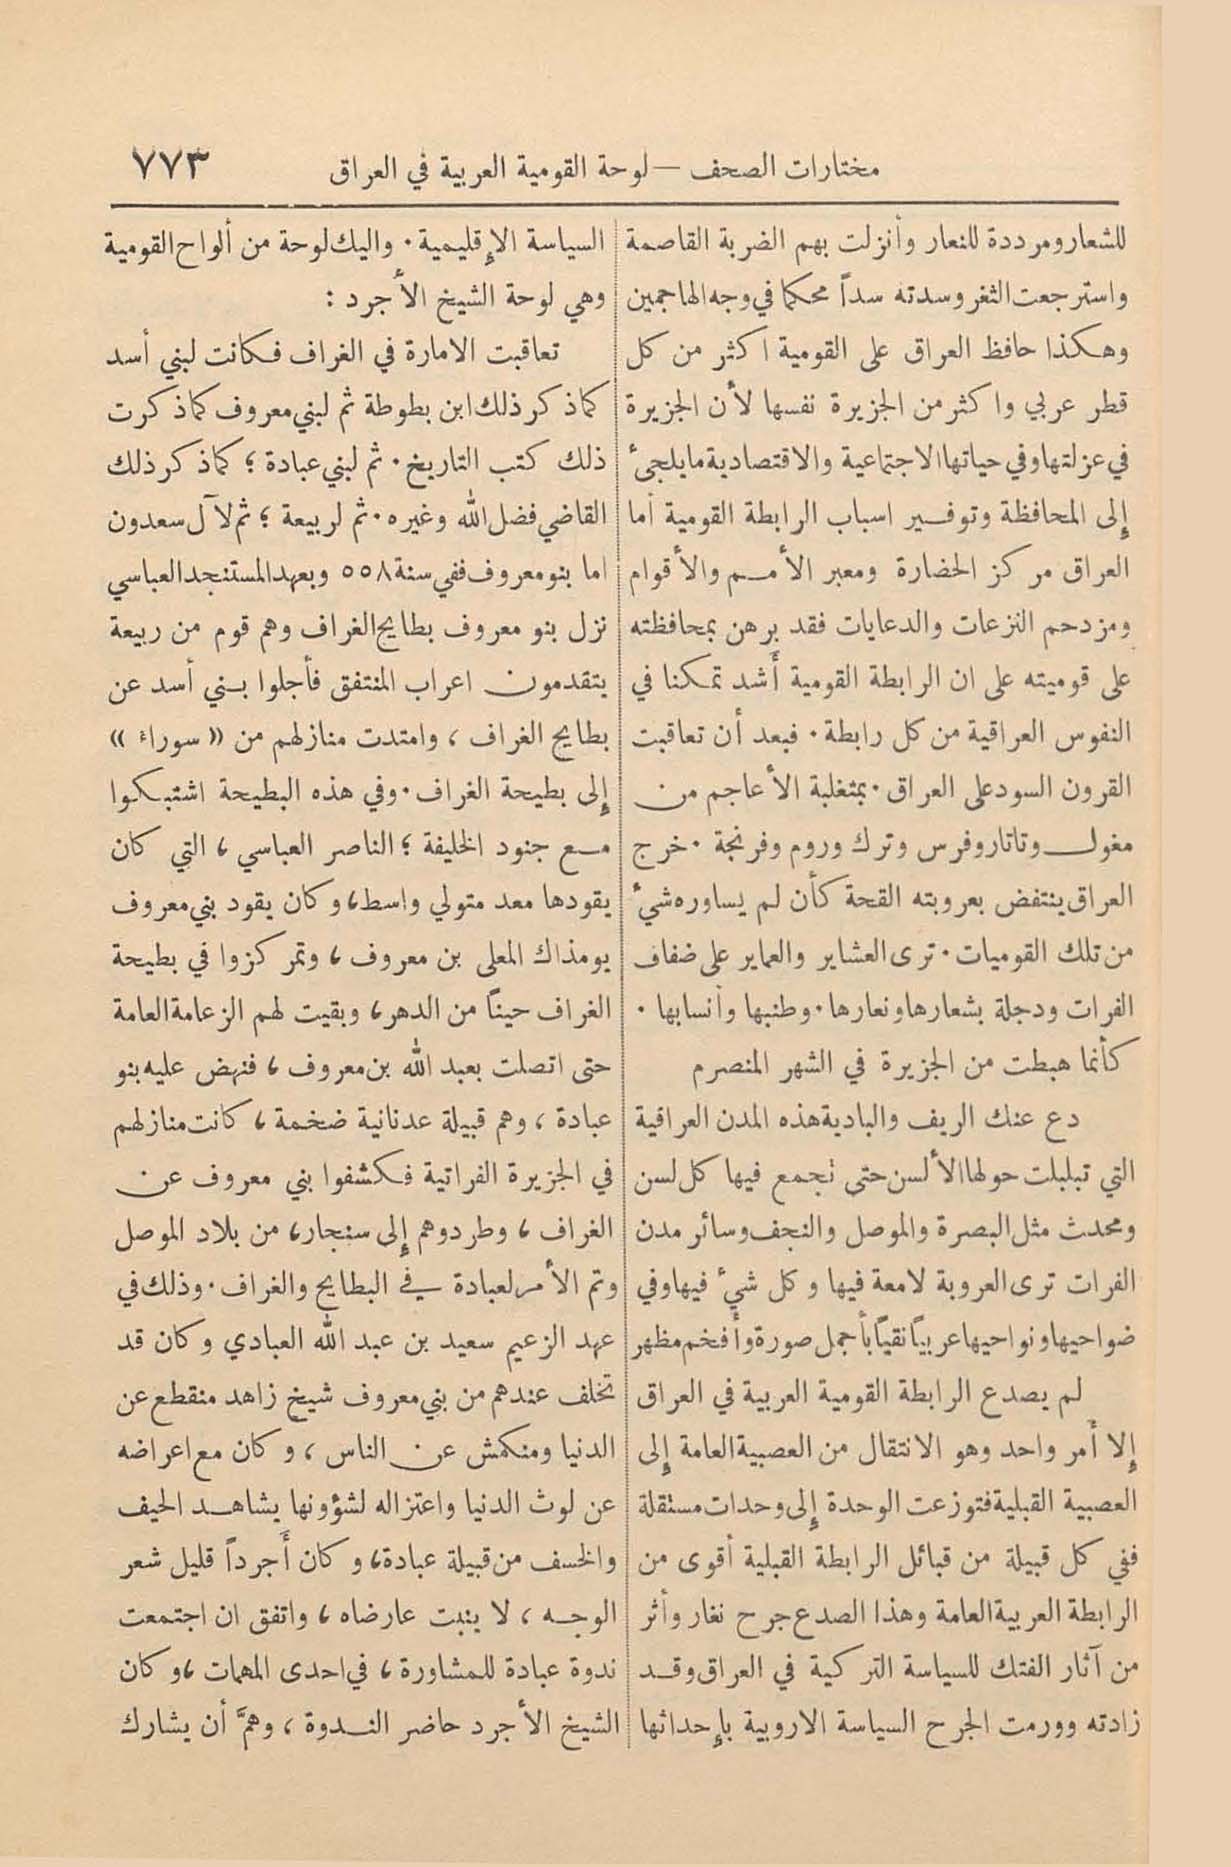 مختارات الصحف — لوحة القومية العربية في العراق ٧٧٣
للشعار ومرددة للنعار وأنزلت بهم الضربة القاصمة
واسترجعت الثغر وسدته سداً محكما في وجه الهاجمين
وهكذا حافظ العراق على القومية اكثر من كل
قطر عربي واكثر من الجزيرة نفسها لأن الجزيرة
في عزلتها وفي حياتها الاجتماعية والاقتصادية ما يلجىء
إلى المحافظة وتوفير اسباب الرابطة القومية أما
العراق مركز الحضارة ومعبر الأمم والأقوام
ومزدحم النزعات والدعايات فقد برهن بمحافظته
على قوميته على ان الرابطة القومية أشد تمكنا في
النفوس العراقية من كل رابطة . فبعد أن تعاقبت
القرون السود على العراق . بمتغلبة الأعاجم من
مغول وتاتار وفرس وترك وروم وفرنجة . خرج
العراق ينتفض بعروبته القحة كأن لم يساوره شيء
من تلك القوميات . ترى العشاير والعماير على ضفاف
الفرات ودجلة بشعارها ونعارها . وطنبها وأنسابها .
كأنما هبطت من الجزيرة في الشهر المنصرم
دع عنك الريف والبادية هذه المدن العراقية
التي تبلبلت حولها الألسن حتى تجمع فيها كل لسن
ومحدث مثل البصرة والموصل والنجف وسائر مدن
الفرات ترى العروبة لامعة فيها وكل شيء فيها وفي
ضواحيها ونواحيها عربياً نقياً بأجمل صورة وأفخم مظهر
لم يصدع الرابطة القومية العربية في العراق
إلا أمر واحد وهو الانتقال من العصبية العامة إلى
العصبية القبلية فتوزعت الوحدة إلى وحدات مستقلة
ففي كل قبيلة من قبائل الرابطة القبلية أقوى من
الرابطة العربية العامة وهذا الصدع جرح نغار وأثر
من آثار الفتك للسياسة التركية في العراق وقد
زادته وورمت الجرح السياسة الاروبية بإحداثها
السياسة الإقليمية . واليك لوحة من ألواح القومية
وهي لوحة الشيخ الأجرد :
تعاقبت الامارة في الغراف فكانت لبني أسد
كما ذكر ذلك ابن بطوطة ثم لبني معروف كما ذكرت
ذلك كتب التاريخ . ثم لبني عبادة ؛ كما ذكر ذلك
القاضي فضل الله وغيره . ثم لربيعة ؛ ثم لآل سعدون
اما بنو معروف ففي سنة ٥٥٨ وبعهد المستنجد العباسي
نزل بنو معروف بطايح الغراف وهم قوم من ربيعة
يتقدمون اعراب المنتفق فأجلوا بني أسد عن
بطايح الغراف ، وامتدت منازلهم من « سوراء »
إلى بطيحة الغراف . وفي هذه البطيحة اشتبكوا
مع جنود الخليفة ؛ الناصر العباسي ، التي كان
يقودها معد متولي واسط ، وكان يقود بني معروف
يومذاك المعلى بن معروف ، وتمركزوا في بطيحة
الغراف حيناً من الدهر ، وبقيت لهم الزعامة العامة
حتى اتصلت بعبد الله بن معروف ، فنهض عليه بنو
عبادة ، وهم قبيلة عدنانية ضخمة ، كانت منازلهم
في الجزيرة الفراتية فكشفوا بني معروف عن
الغراف ، وطردوهم إلى سنجار ، من بلاد الموصل
وتم الأمر لعبادة في البطايح والغراف . وذلك في
عهد الزعيم سعيد بن عبد الله العبادي وكان قد
تخلف عندهم من بني معروف شيخ زاهد منقطع عن
الدنيا ومنكمش عن الناس ، وكان مع اعراضه
عن لوث الدنيا واعتزاله لشؤونها يشاهد الحيف
والخسف من قبيلة عبادة ، وكان أجرداً قليل شعر
الوجه ، لا ينبت عارضاه ، واتفق ان اجتمعت
ندوة عبادة للمشاورة ، في احدى المهمات ، وكان
الشيخ الأجرد حاضر الندوة ، وهمَّ أن يشارك